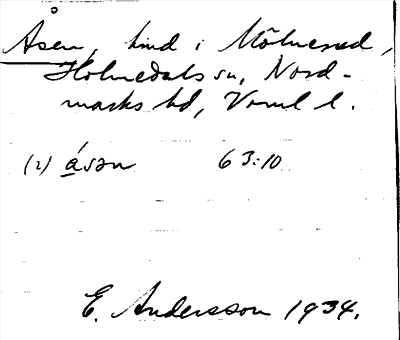 Åsen, hmd i Mölnerud,
Holmedals sn, Nord-
marks hd, Vrml l.
(2) åsən 63:10
E. Andersson 1934.